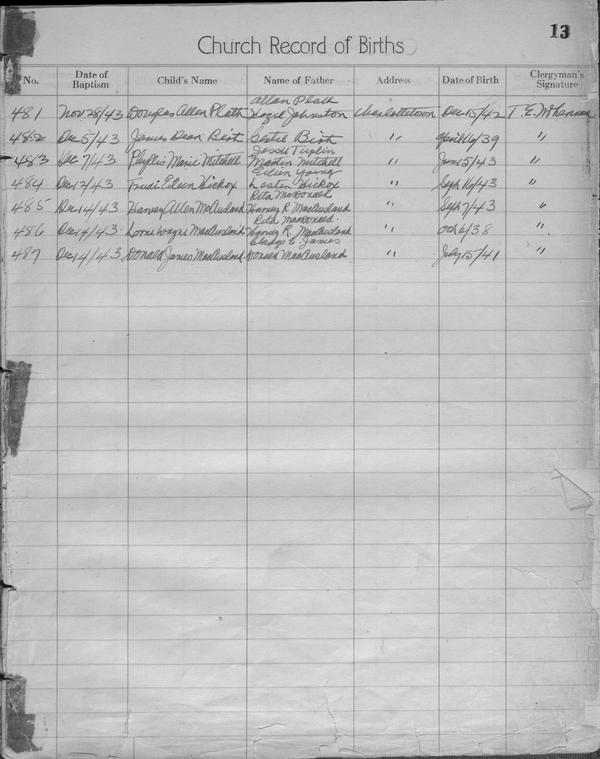 13
Church Record of Births
No. Date of Baptism Child's Name Name of Father Address Date of Birth Clergyman's Signature
Allan Plath
481 Nov 28/43 Douglas Allen Plath Hazel Johnston Charlottetown Dec 15/42 T. E.
482 Dec 5/43 James Dean Birt Birt " April 16/39 "
Jessie Tuplin
483 Dec 7/43 Phyllis Marie Mitchell Martin Mitchell " June 5/43 "
Eileen Young
484 Dec 12/43 Trudi Eileen Hickox Lester Hickox " Sept 16/43 "
Rita McDonald
485 Dec 14/43 Harvey Allen MacAusland Harvey R. MacAusland " Sept 7/43 "
Rita MacDonald.
486 Dec 14/43 Lorne Wayne MacAusland Harvey R. MacAusland " Oct 6/38 "
Gladys E. James
487 Dec 14/43 Donald James MacAusland Donald MacAusland " July 15/41 "